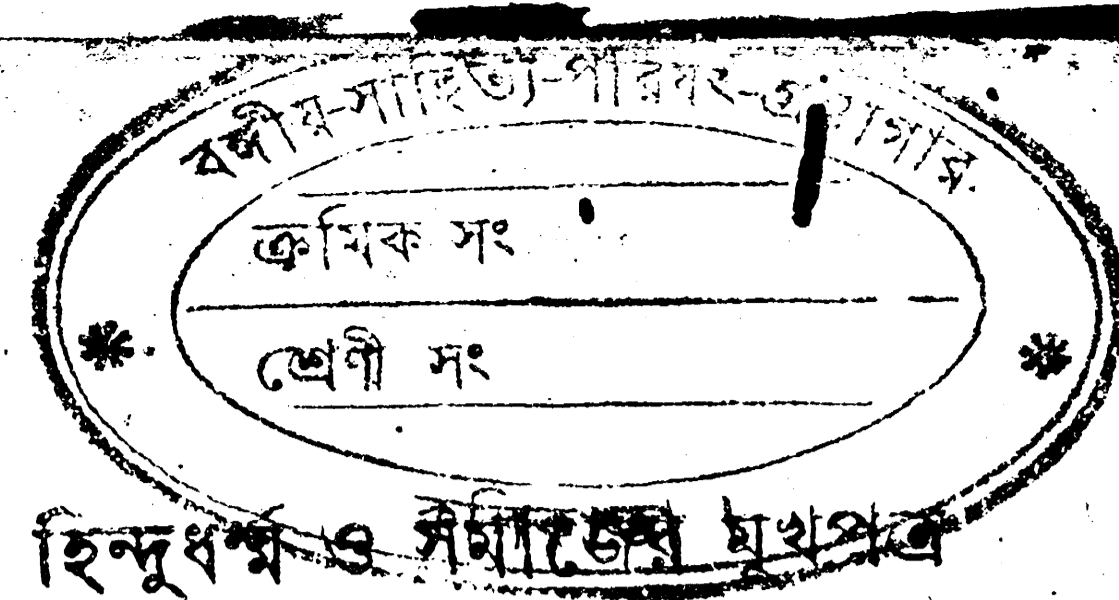 বঙ্গীয়-সাহিত্য-পরিষৎ-গ্রন্থাগার
ক্রমিক সং
শ্রেণী সং
হিন্দুধর্ম্ম ও সমাজের মুখপত্র